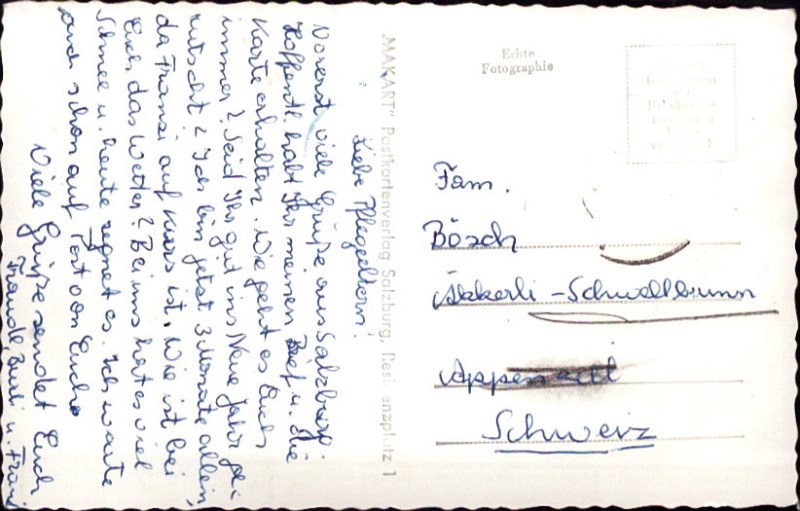 Liebe Pflegeeltern!
Vorerst viele Grüße aus Salzburg.
Hoffentl. habt Ihr meinen Brief u. die
Karte erhalten. Wie geht es Euch
immer? Seid Ihr gut ins Neue Jahr ge-
rutscht? Ich bin jetzt 3 Monate allein,
da Franzi auf Kurs ist. Wie ist bei
Euch das Wetter? Bei uns hat es viel
Schnee u. heute regnet es. Ich warte
auch schon auf Post von Euch
Viele Grüße sendet Euch
Traude, u.
"MAKART" Postkartenverlag Salzburg, Residenzplatz 1
Echte
Fotographie
Fam.
Bösch
Äkkerli - Schwellbrunn
Appenzell
Schweiz